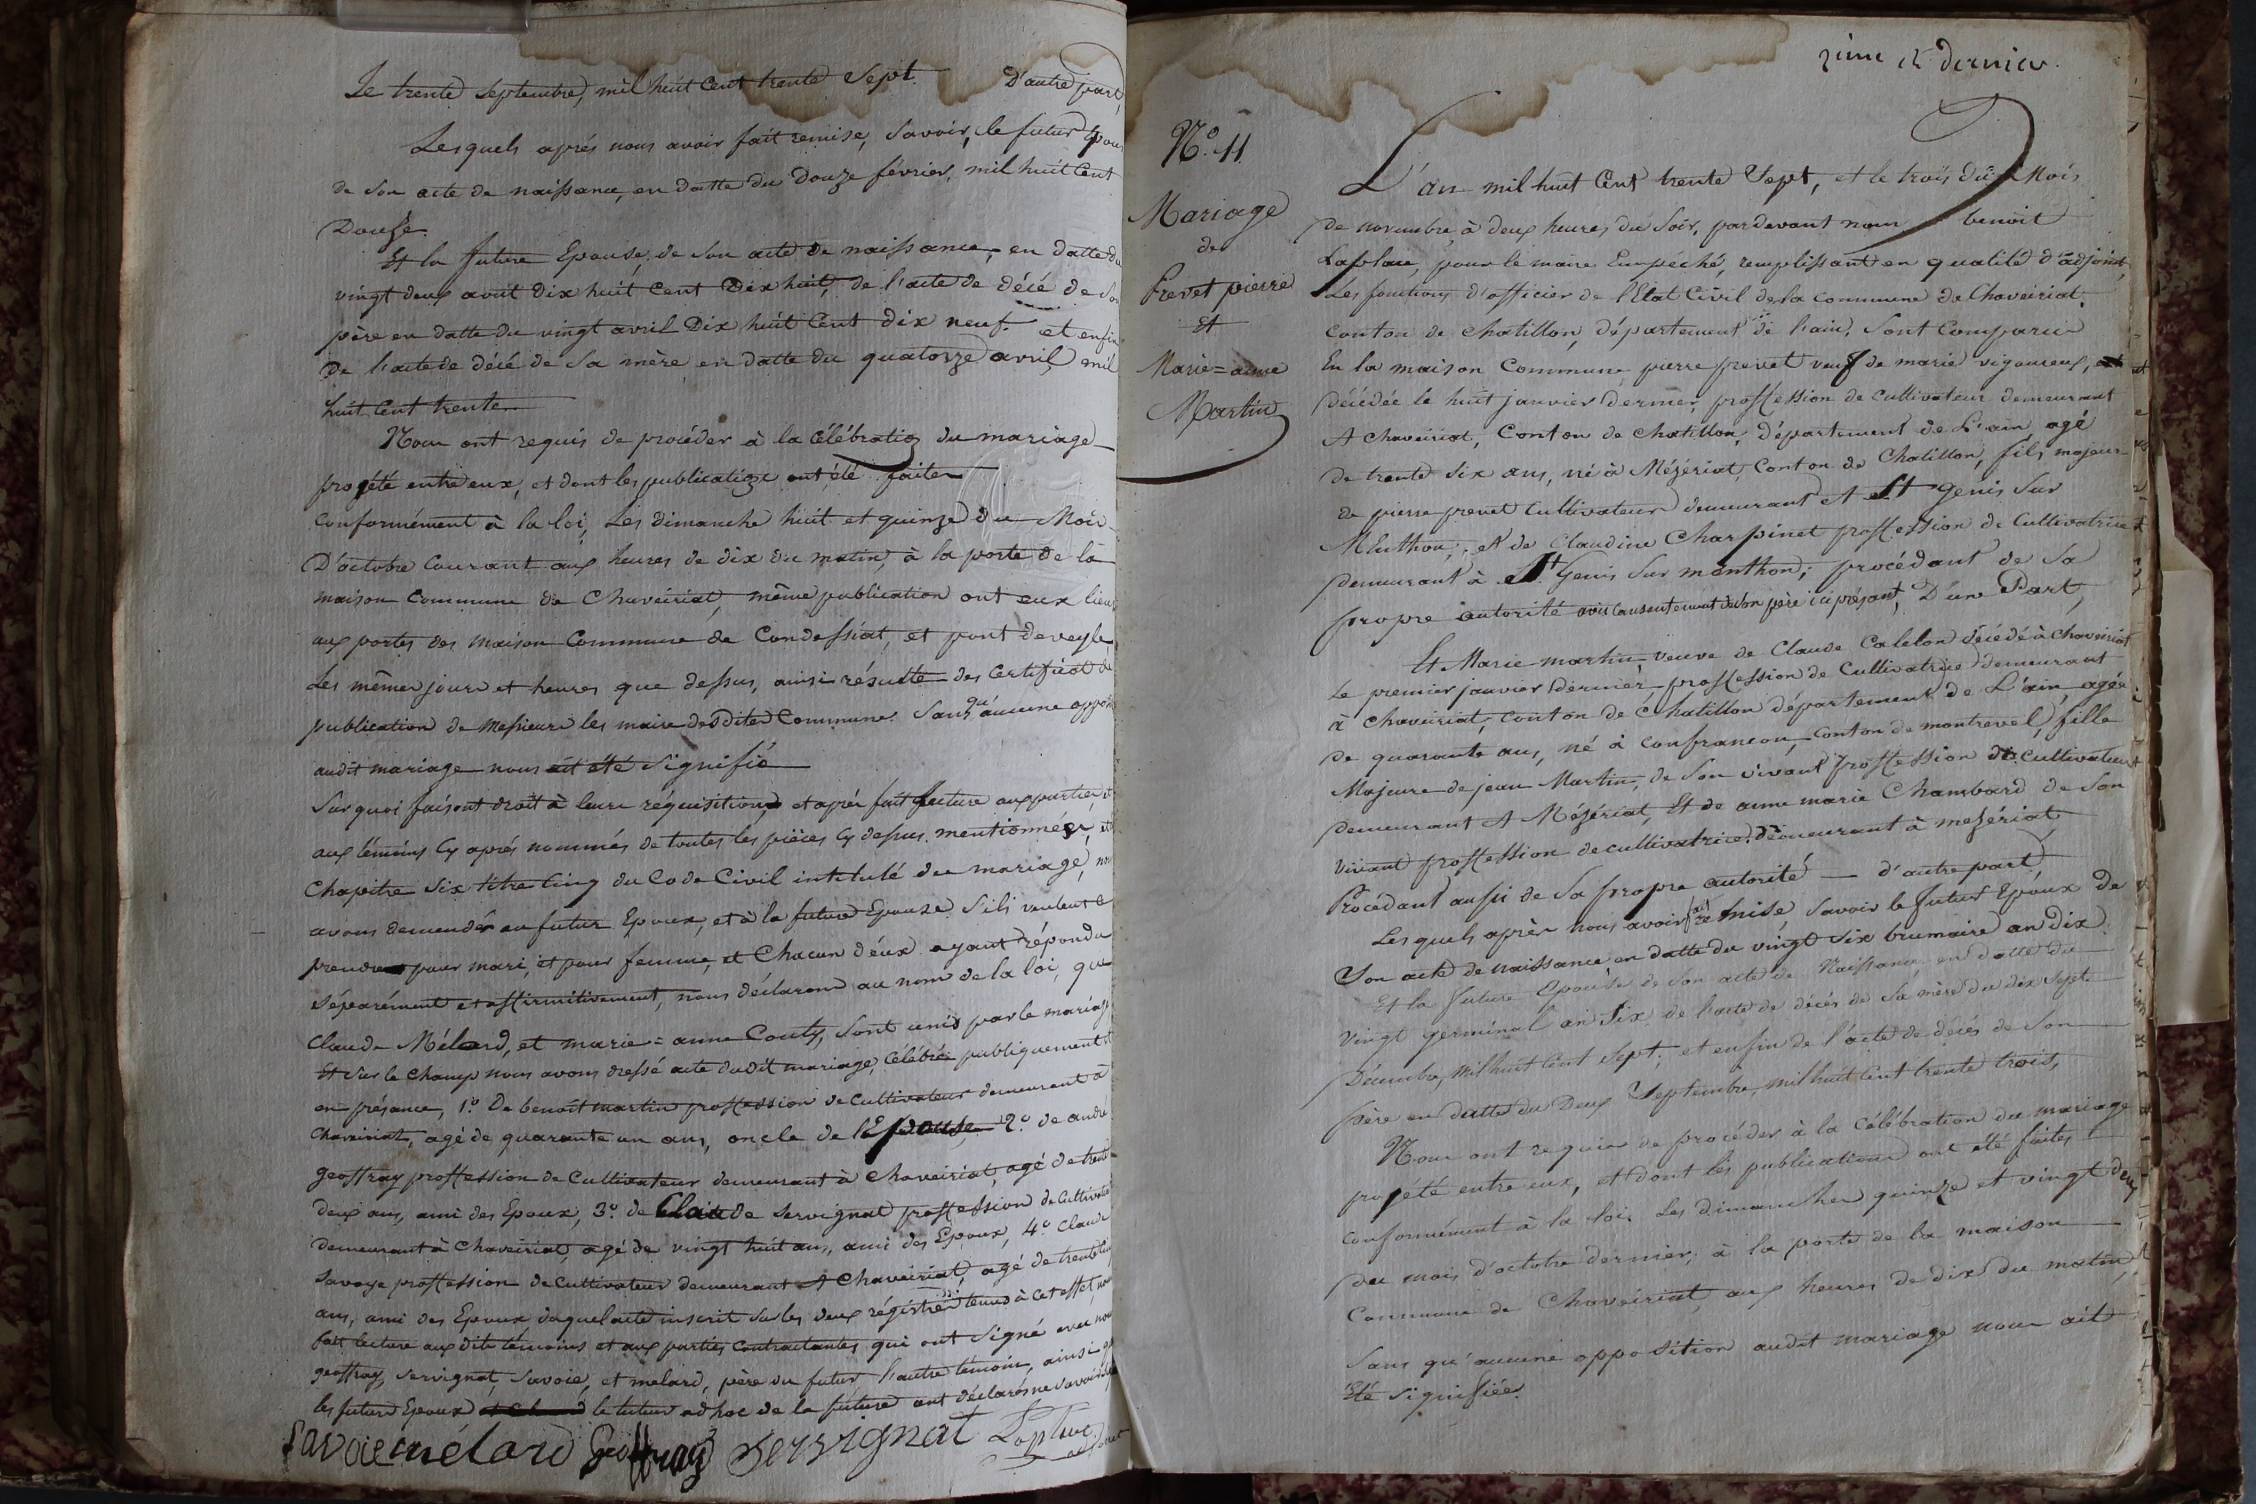 Le trente Septembre, mil huit Cent trente Sept. D'autre part,
Lesquels aprés nous avoir fait remise, Savoir, le futur Epoux
de Son acte de naissance, en datte du Douze février, mil huit Cent
Douze.
Et la future Epouse, de Son acte de naissance, en datte du
vingt deux avril Dix huit Cent Dix huit, de l'acte de décé de Son
père en datte du vingt avril Dix huit Cent dix neuf. et enfin
De l'acte de décé de Sa mère en datte du quatorze avril mil
huit Cent trente.
Nous ont requis de procéder à la Célébration du mariage
progété entre eux, et dont les publications ont été faites
conformément à la loi, Les dimanche huit et quinze du Mois
D'octobre Courant aux heures de dix du matin, à la porte de la
maison Commune de Chaveiriat, même publication ont eux lieu
aux portes des maison Commune de Condessiat, et pont de veyle,
Les mêmes jours et heures que dessus, ainsi résulte des Certificat de
publication de Messieurs les maire desdites Commune. Sans qu'aucune oppo
audit mariage nous ait été Signifié
Sur quoi faisont droit à leurs réquisitions, et aprés fait lecture aux parties et
aux témoins Cy aprés nommés de toutes les pièces Cy dessus mentionnées, et
Chapitre Six titre Cinq du Code Civil intitulé du mariage, nous
avons demendér au futur Epoux, et à la future Epouse S'ils veulent se
prendre pour mari, et pour femme, et Chacun d'éux ayant répondu
séparément et affirmitivement, nous déclarons au nom de la loi, que
Claude Mélard, et marie=anne Couty, Sont unis par le mariage
Et Sur le Champ nous avons dressé acte dudit mariage, Célébrée publiquement et
en présance, 1.º De benoit martin proffession de Cultivateur demeurant à
Chaveiriat, agé de quarante un ans, oncle de l'Epouse 2.º de andré
geoffray proffession de Cultivateur demeurant à Chaveiriat, agé de trente
deux ans, ami des Epoux, 3.º de Claude Servignat proffession de Cultivateur
demeurant à Chaveiriat, agé de vingt huit ans, ami des Epoux, 4.º Claude
Savoye proffession de Cultivateur demeurant A Chaveiriat, agé de trente cinq
ans, ami des Epoux duquel acte inscrit Sur les deux régistres tenus à cet effet, nous
fait lecture aux dits témoins et aux parties Contractantes qui ont Signé avec nous
geoffray, Servignat, Savoie, et melard, père du futur l'autre témoin, ainsi que
les futurs Epoux le tuteur adhoc de la future ont déclaré ne Savoir
Savoie mélard Geoffray Servignat Laplace
2ème et dernier.
N.º 11
Mariage
de
Prevet pierre
Et
Marie=anne
Martin
L'an mil huit Cent trente Sept, et le trois du Mois
de novembre à deux heures du Soir, pardevant nous benoit
Laplace, pour le maire Empéché, remplissant en qualité d'adjoint,
Les fonctions d'officier de l'Etat Civil de la commune de Chaveiriat,
conton de chatillon, département de l'ain, Sont Comparu
En la maison Commune pierre prevet veuf de marie vigoureux,
décédée le huit janvier dernier, proffession de cultivateur demeurant
A chaveiriat, Conton de chatillon, département de L'ain agé
de trente six ans, né à Mézériat, Conton de Chatillon, fils majeur
de pierre prevet Cultivateur demeurant A St Genis Sur
Menthon, et de Claudine Charpinet proffession de Cultivatrice
demeurant à St Genis Sur menthon; procédant de Sa
propre autorité avec Consentement de Son père ici présant, D'une Part,
Et Marie martin, veuve de Claude Calelon décédé à chaveiriat
le premier janvier dernier proffession de Cultivatrice demeurant
à chaveiriat, conton de Chatillon département de L'ain, agée
de quarante ans, né à confrancon, conton de montrevel, fille
Majeure de jean Martin, de Son vivant proffession de Cultivateur
demeurant A Mézériat, Et de anne marie Chambard de Son
vivant proffession de cultivatrice, démeurant à mesériat
Procédant aussi de Sa propre autorité — d'autre part
Lesquels après nous avoir fait remise Savoir le futur Epoux De
Son acte de naissance en datte du vingt six brumaire an dix
Et la future Epouse de Son acte de Naissance en datte du
vingt germinal an Six de l'acte de décés de Sa mère du dix sept
Décembre, mil huit Cent Sept; et enfin de l'acte de décés de Son
père en datte du Deux Septembre, mil huit Cent trente trois,
Nous ont requis de procéder à la Célébration du mariage
progété entre eux, et dont les publications ont été faites
conformément à la loi. Les dimanches quinze et vingt deux
du mois d'octobre dernier; à la porte de la maison
Commune de Chaveiriat, aux heures de dix du matin,
Sans qu'aucune opposition audit mariage nous ait
été signiffiée.